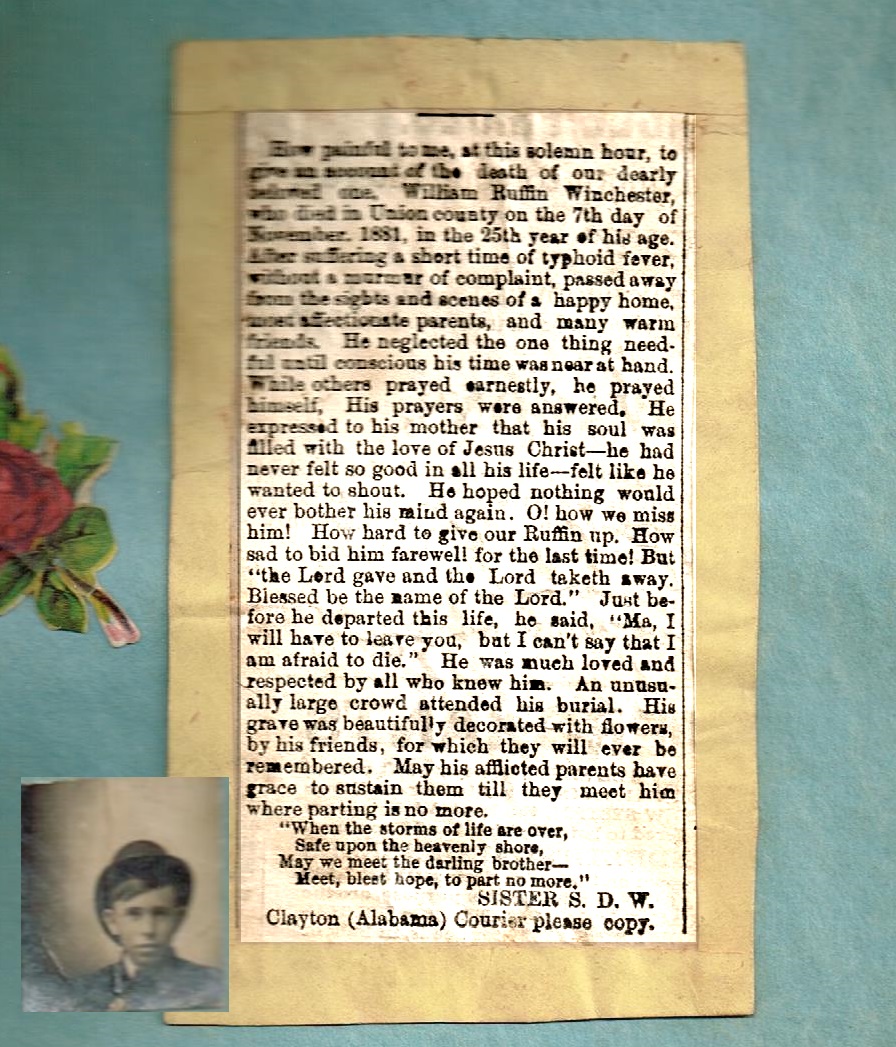 How painful to me, at this solemn hour, to
give an account of the death of our dearly
beloved one, William Ruffin Winchester,
who died in Union county on the 7th day of
November, 1881, in the 25th year of his age.
After suffering a short time of typhoid fever,
without a murmur of complaint, passed away
from the sights and scenes of a happy home,
most affectionate parents, and many warm
friends. He neglected the one thing need-
ful until conscious his time was near at hand.
While others prayed earnestly, he prayed
himself, His prayers were answered. He
expressed to his mother that his soul was
filled with the love of Jesus Christ—he had
never felt so good in all his life—felt like he
wanted to shout. He hoped nothing would
ever bother his mind again. O! how we miss
him! How hard to give our Ruffin up. How
sad to bid him farewell for the last time! But
"the Lord gave and the Lord taketh away.
Blessed be the name of the Lord." Just be-
fore he departed this life, he said, "Ma, I
will have to leave you, but I can't say that I
am afraid to die." He was much loved and
respected by all who knew him. An unusu-
ally large crowd attended his burial. His
grave was beautifully decorated with flowers,
by his friends, for which they will ever be
remembered. May his afflicted parents have
grace to sustain them till they meet him
where parting is no more.
"When the storms of life are over,
Safe upon the heavenly shore,
May we meet the darling brother—
Meet, blest hope, to part no more."
SISTER S. D. W.
Clayton (Alabama) Courier please copy.